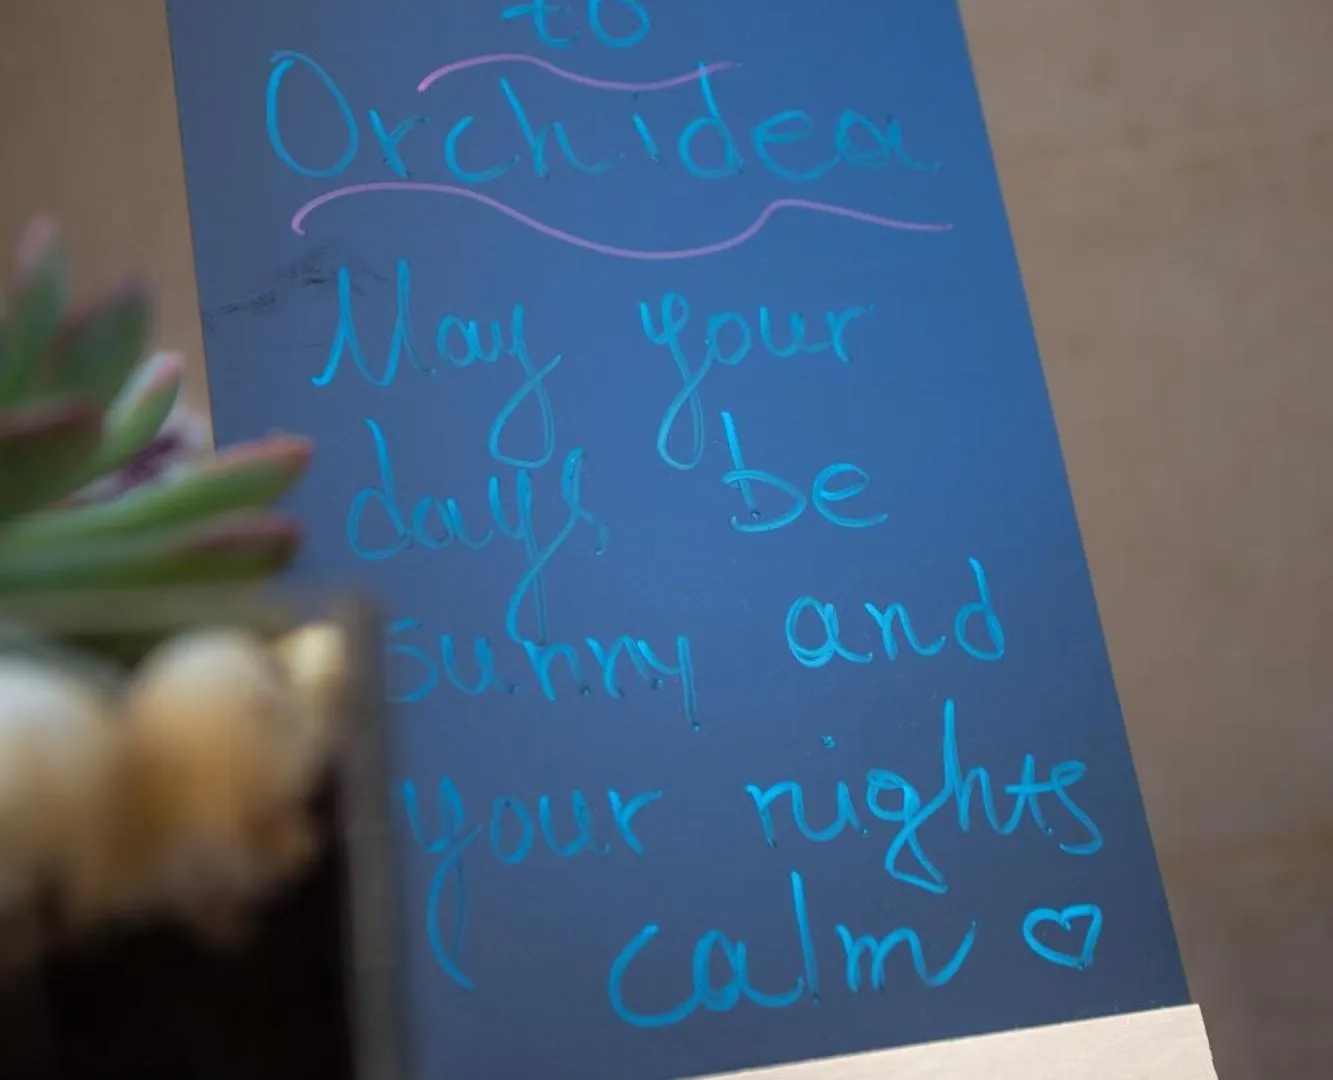 to
Orchidea
May your
days be
sunny and
your nights
calm ♡